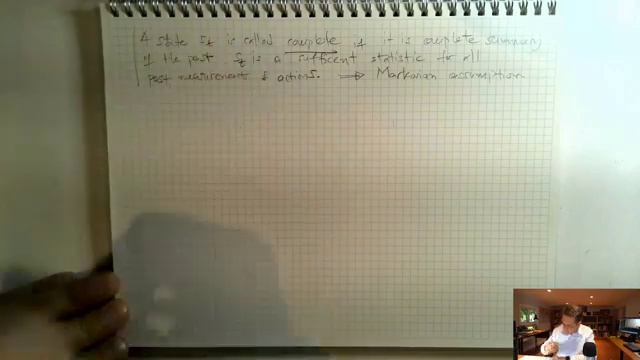 A state s_t is called complete if it is complete summary
of the past s_t is a sufficent statistic for all
past measurements & actions. ⟹ Markovian assumption